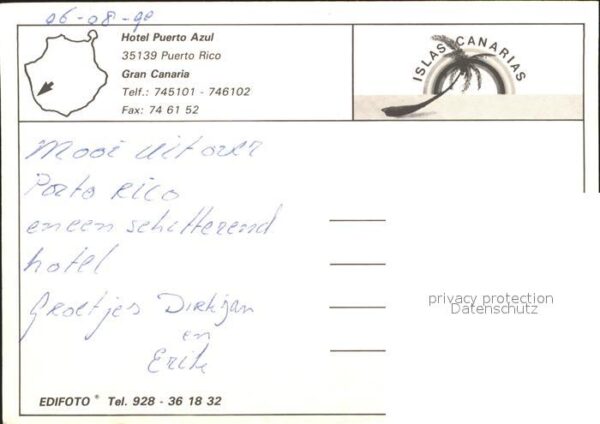 06-08-90
Hotel Puerto Azul
35139 Puerto Rico
Gran Canaria
Telf.: 745101 - 746102
Fax: 74 61 52
ISLAS CANARIAS
Mooi uit over
Porto Rico
en een schitterend
hotel
Groetjes Dirkjan
en
Erik
privacy protection
Datenschutz
EDIFOTO ® Tel. 928 - 36 18 32